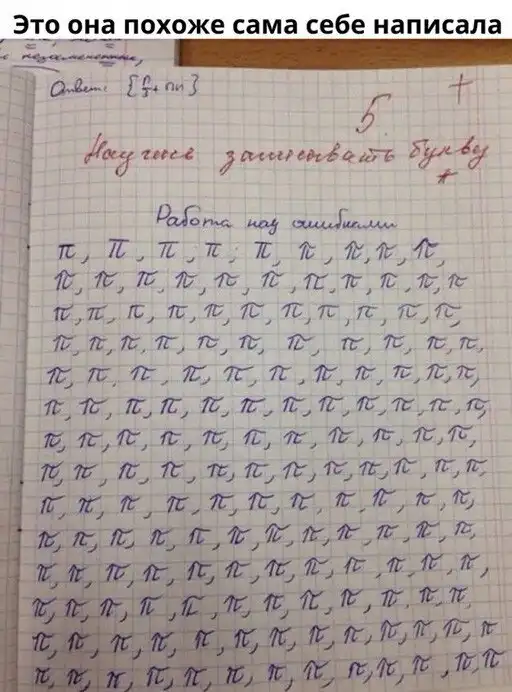 Это она похоже сама себе написала
незамененные,
Ответ: {π/3 + πn}
5 +
Научись записывать букву
Работа над ошибками
π, π, π, π, π, π, π, π, π,
π, π, π, π, π, π, π, π, π, π, π
π, π, π, π, π, π, π, π, π, π, π,
π, π, π, π, π, π, π, π, π, π, π,
π, π, π, π, π, π, π, π, π, π, π,
π, π, π, π, π, π, π, π, π, π, π, π,
π, π, π, π, π, π, π, π, π, π, π,
π, π, π, π, π, π, π, π, π, π, π, π,
π, π, π, π, π, π, π, π, π, π, π,
π, π, π, π, π, π, π, π, π, π, π, π,
π, π, π, π, π, π, π, π, π, π, π, π,
π, π, π, π, π, π, π, π, π, π, π, π,
π, π, π, π, π, π, π, π, π, π, π, π, π
π, π, π, π, π, π, π, π, π, π, π, π, π